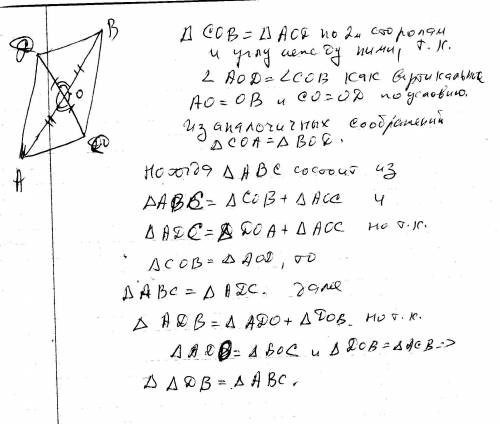 B
O
A
Δ COB = Δ AOD по 2м сторонам
и углу между ними, т.к.
∠ AOD = ∠COB как вертикальные
AO = OB и CO = OD по условию.
Из аналогичных соображений
Δ COA = Δ BOD.
Но тогда Δ ABC состоит из
Δ ABC = Δ COB + Δ AOC и
Δ ADC = Δ DOA + Δ AOC но т.к.
Δ COB = Δ AOD, то
Δ ABC = Δ ADC. Далее
Δ ADB = Δ ADO + Δ DOB. но т.к.
Δ ADO = Δ BOC и Δ DOB = Δ =>
Δ ADB = Δ ABC.